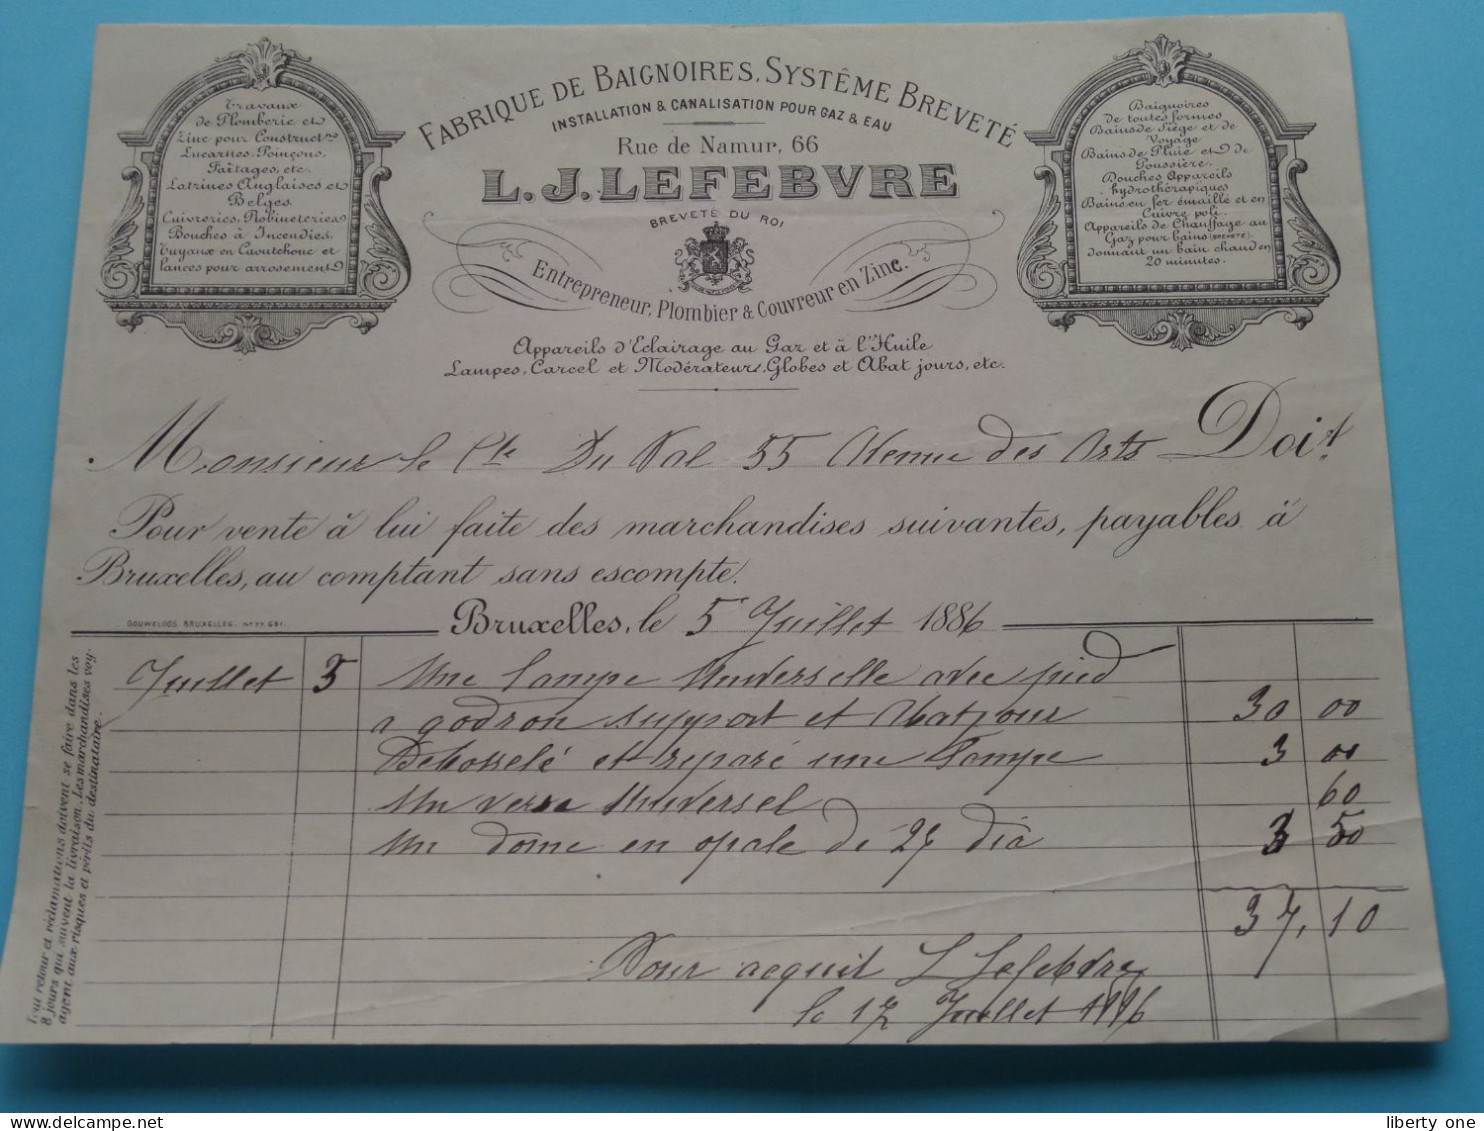 FABRIQUE DE BAIGNOIRES, SYSTÊME BREVETÉ
INSTALLATION & CANALISATION POUR GAZ & EAU
Rue de Namur, 66
L.J. LEFEBVRE
BREVETÉ DU ROI
Entrepreneur, Plombier & Couvreur en Zinc.
Appareils d'Eclairage au Gaz et à l'Huile
Lampes, Carcel et Modérateurs, Globes et Abat jours, etc.
Travaux
de Plomberie et
Zinc pour Construct.ns
Lucarnes, Poinçons,
Faîtages, etc.
Latrines Anglaises et
Belges.
Cuivreries, Robineteries
Bouches à Incendies.
Tuyaux en Caoutchouc et
lances pour arrosement
Baignoires
de toutes formes
Bains de Siège et de
Voyage
Bains de Pluie et de
Poussière.
Douches Appareils
hydrothérapiques
Bains en fer émaillé et en
Cuivre poli.
Appareils de Chauffage au
Gaz pour bains (BREVETÉ).
donnant un bain chaud en
20 minutes.
Monsieur le Cte Du Val 55 Avenue des Arts Doit
Pour vente à lui faite des marchandises suivantes, payables à
Bruxelles, au comptant sans escompte.
GOUWELOOS BRUXELLES. No 77.681.
Bruxelles, le 5 Juillet 1886
Juillet 5 Une lampe Universelle avec pied
a godron support et Abatjour 30 00
Debosselé et reparé une Lampe 3 00
Un verre Universel 60
Un dome en opale de 27 dia 3 50
37,10
Pour acquit L Lefebvre
le 17 Juillet 1886
Tout retour et réclamations doivent se faire dans les
8 jours qui suivent la livraison. Les marchandises voy-
agent aux risques et périls du destinataire.
delcampe.net
liberty one